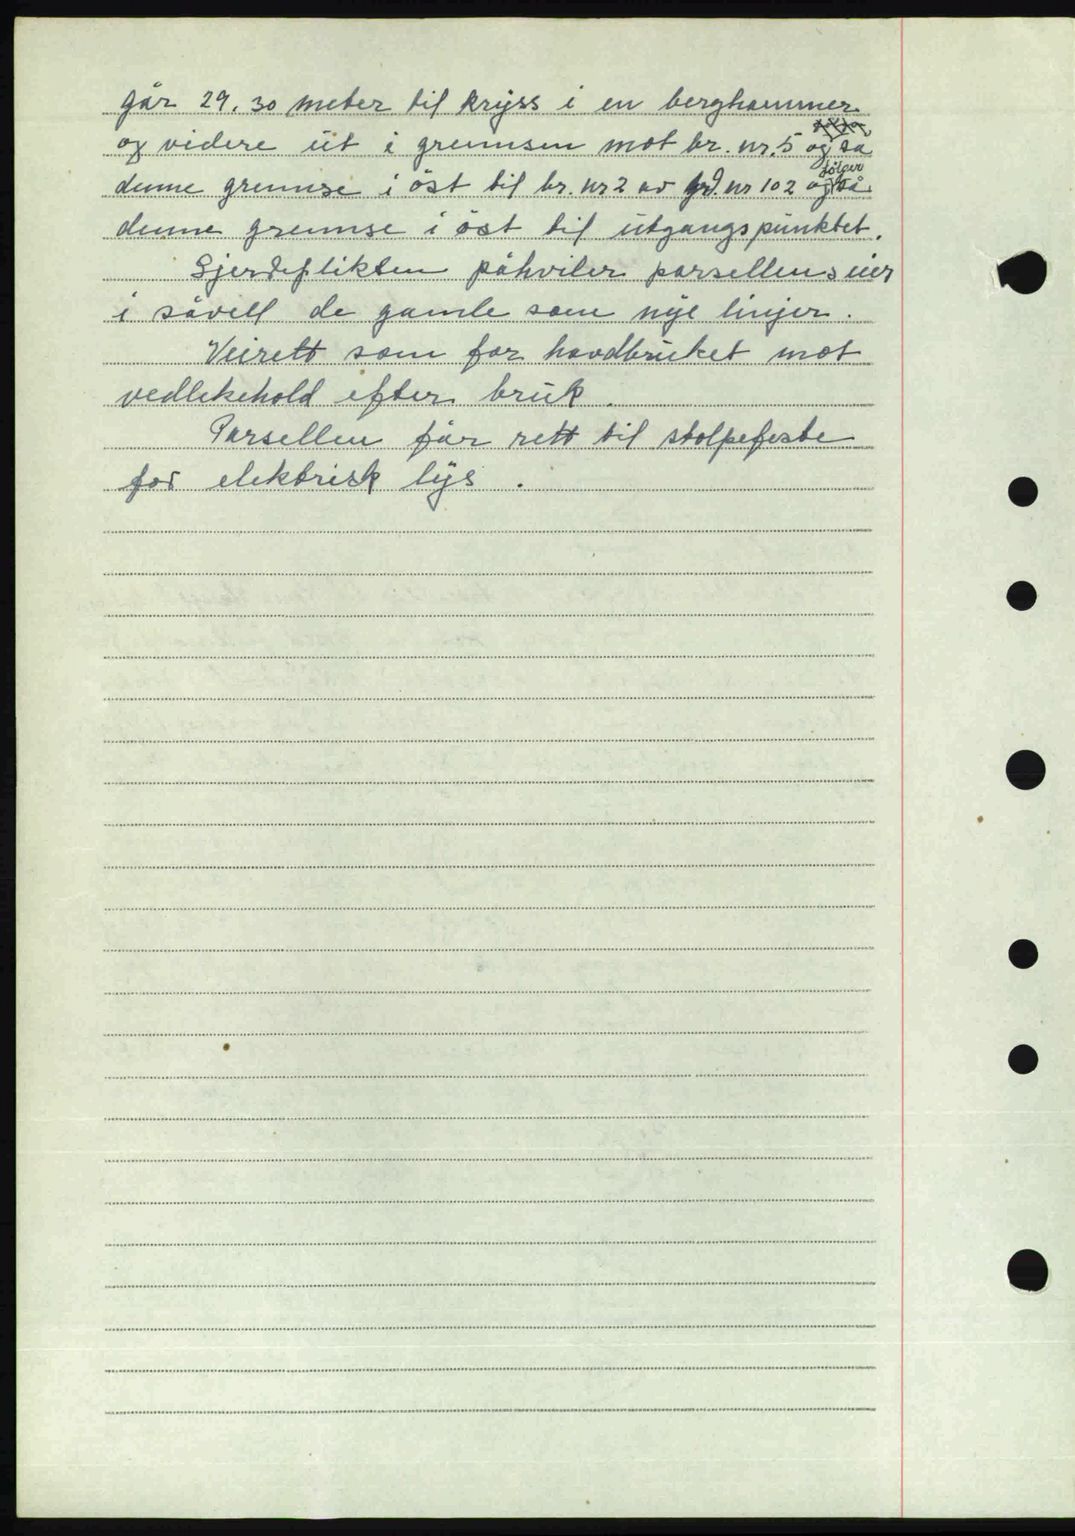 går 29.30 meter til kryss i en berghammer
og videre ut i grensen mot br. nr. 5 og så
følger
denne grense i øst til br. nr 2 av grd. nr 102 og så
denne grense i øst til utgangspunktet.
Gjerdeplikten påhviler parsellens eier
i såvell de gamle som nye linjer.
Veirett som for hovdbruket mot
vedlikehold efter bruk.
Parsellen får rett til stolpefeste
for elektrisk lys.